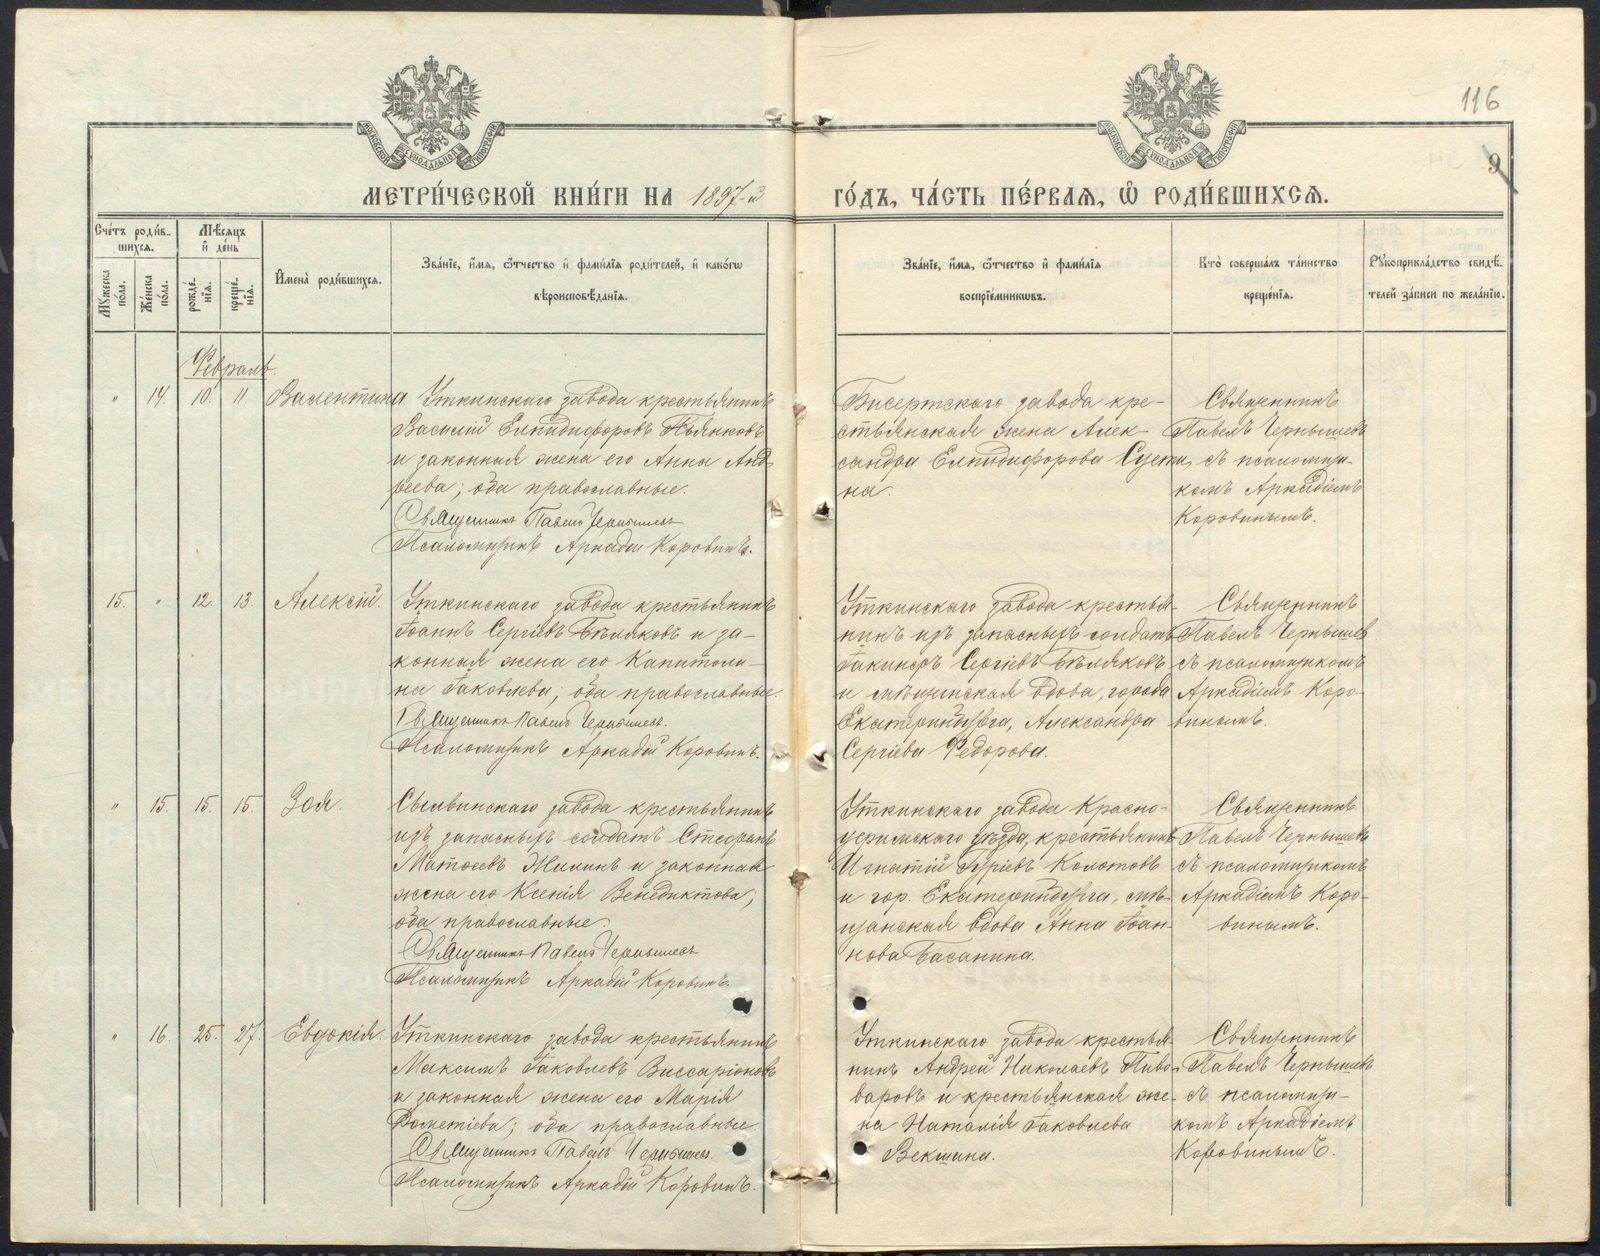 116
9
МОСКОВСКОЙ СѴНОДАЛЬНОЙ ТИПОГРАФІИ
МОСКОВСКОЙ СѴНОДАЛЬНОЙ ТИПОГРАФІИ
МЕТРИ́ЧЕСКОЙ КНИ́ГИ НА 1897-й ГО́ДЪ, ЧА́СТЬ ПЕ́РВАЯ, Ѽ РОДИ́ВШИХСѦ.
Сче́тъ роди́вшихсѧ.
Мѣ́сѧцъ и҆ де́нь
Мꙋ́жеска по́ла.
Же́нска по́ла.
рожде́нїѧ.
креще́нїѧ.
И҆мена̀ роди́вшихсѧ.
Зва́нїе, и҆́мѧ, ѻ҆́тчество и҆ фами́лїѧ роди́телей, и҆ како́гѡ
вѣроисповѣ́данїѧ.
Зва́нїе, и҆́мѧ, ѻ҆́тчество и҆ фами́лїѧ
воспрїе́мникѡвъ.
Кто̀ соверша́лъ та́инство
креще́нїѧ.
Рꙋкоприкла́дство свидѣ́телей за́писи по жела́нїю.
Февраль.
" 14. 10. 11. Валентина
Уткинскаго завода крестьянинъ
Василій Елпидифоровъ Пьянковъ
и законная жена его Анна Анд
реева; оба православные.
Священникъ Павелъ Чернышевъ
Псаломщикъ Аркадій Коровинъ.
Бисертскаго завода кре-
стьянская жена Алек-
сандра Елпидифорова
на.
Священникъ
Павелъ Чернышевъ
съ псаломщи-
комъ Аркадіемъ
Коровинымъ.
15. " 12. 13. Алексій.
Уткинскаго завода крестьянинъ
Іоаннъ Сергіевъ Бѣляковъ и за-
конная жена его Капитоли-
на Іаковлева; оба православные.
Священникъ Павелъ Чернышевъ.
Псаломщикъ Аркадій Коровинъ.
Уткинскаго завода крестья-
нинъ изъ запасныхъ солдатъ
Іакинфъ Сергіевъ Бѣляковъ
и мѣщанская вдова, города
Екатеринбурга, Александра
Сергіева Федорова.
Священникъ
Павелъ Чернышев
съ псаломщикомъ
Аркадіемъ Коро-
винымъ.
" 15. 15. 15. Зоя
Сылвинскаго завода крестьянинъ
изъ запасныхъ солдатъ Стефанъ
Матѳеевъ Жилинъ и законная
жена его Ксенія Венедиктова;
оба православные
Священникъ Павелъ Чернышевъ
Псаломщикъ Аркадій Коровинъ.
Уткинскаго завода Красно-
уфимскаго уѣзда, крестьянинъ
Игнатій Гуріевъ Колотовъ
и гор. Екатеринбурга, мѣ-
щанская вдова Анна Іоан-
нова Басанина.
Священникъ
Павелъ Чернышевъ
съ псаломщикомъ
Аркадіемъ Коро-
винымъ.
" 16. 25. 27. Евдокія.
Уткинскаго завода крестьянинъ
Максимъ Іаковлевъ Виссаріоновъ
и законная жена его Марія
Дометіева; оба православные
Священникъ Павелъ Чернышевъ.
Псаломщикъ Аркадій Коровинъ.
Уткинскаго завода крестья-
нинъ Андрей Николаевъ Пиво-
варовъ и крестьянская же-
на Наталія Іаковлева
Векшина.
Священникъ
Павелъ Чернышевъ
съ псаломщи-
комъ Аркадіемъ
Коровинымъ.